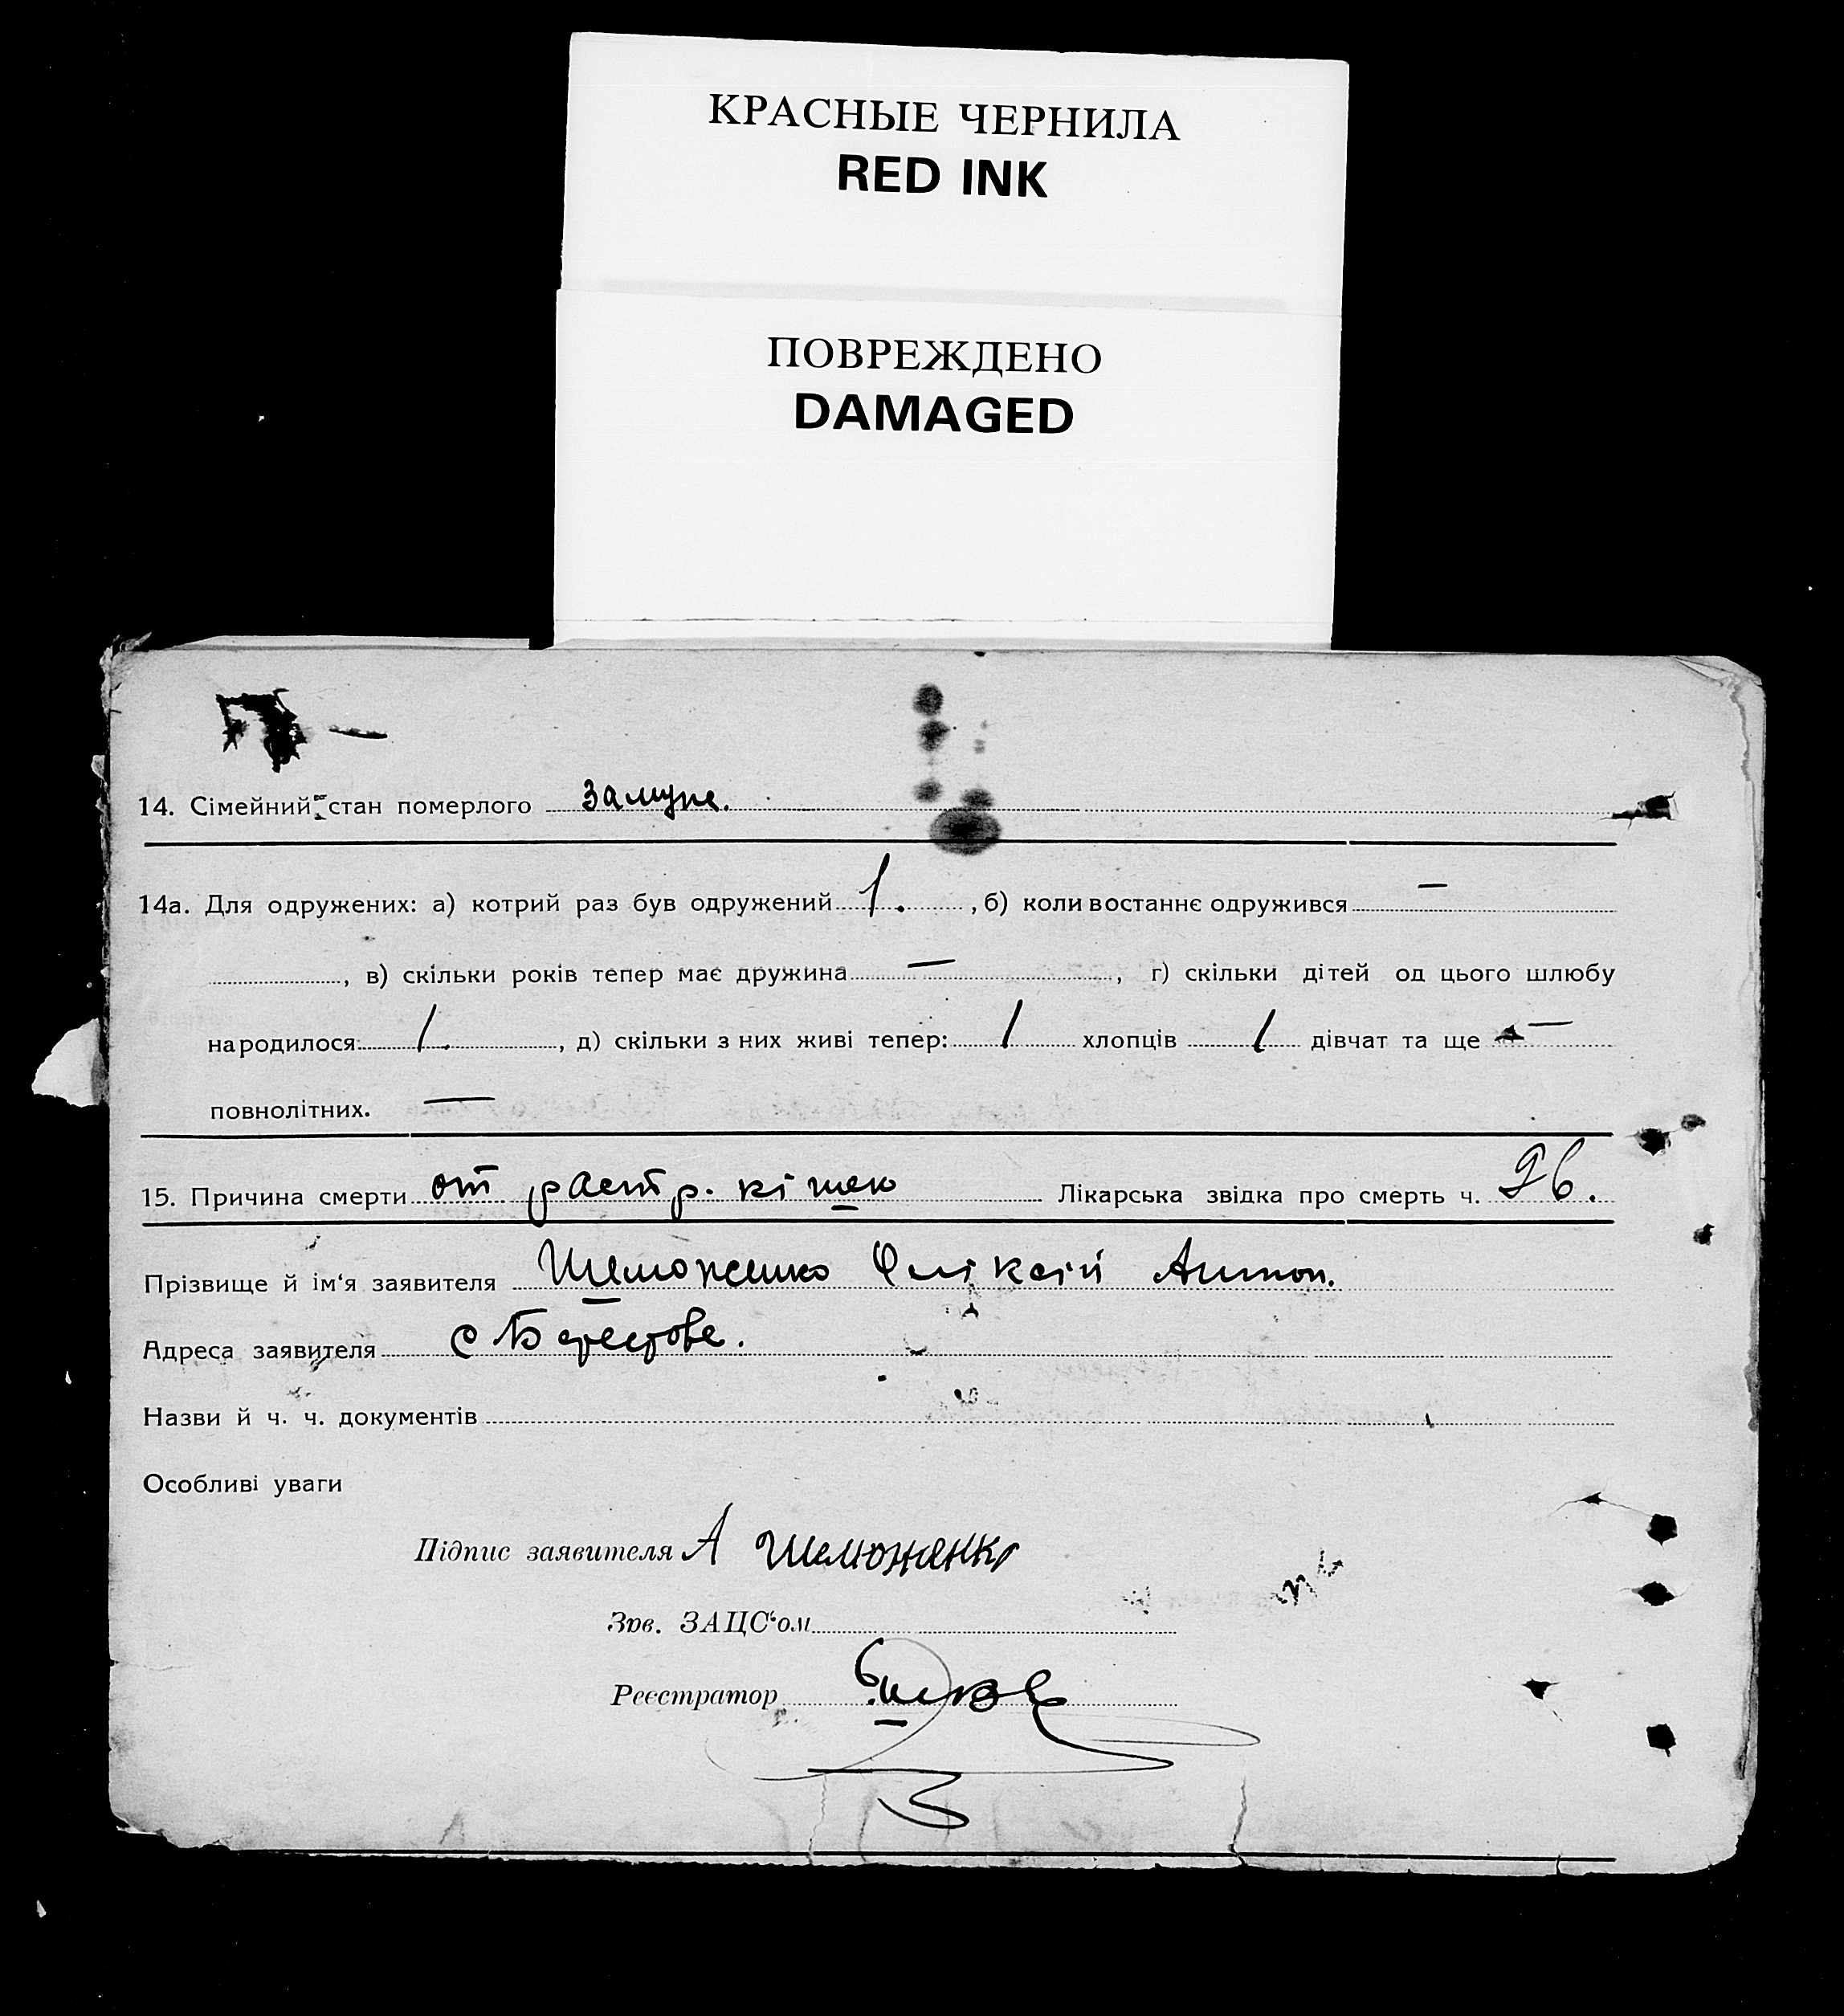 КРАСНЫЕ ЧЕРНИЛА
RED INK
ПОВРЕЖДЕНО
DAMAGED
14. Сімейний стан померлого замуж.
14а. Для одружених: а) котрий раз був одружений 1. , б) коли востаннє одружився —
, в) скільки років тепер має дружина — , г) скільки дітей од цього шлюбу
народилося: 1. , д) скільки з них живі тепер: 1 хлопців 1 дівчат та ще —
повнолітних. —
15. Причина смерти от Лікарська звідка про смерть ч.
Прізвище й ім'я заявителя Шеможенко Антон.
Адреса заявителя с
Назви й ч. ч. документів
Особливі уваги
Підпис заявителя А Шеможенко
Зав. ЗАЦС'ом
Реєстратор